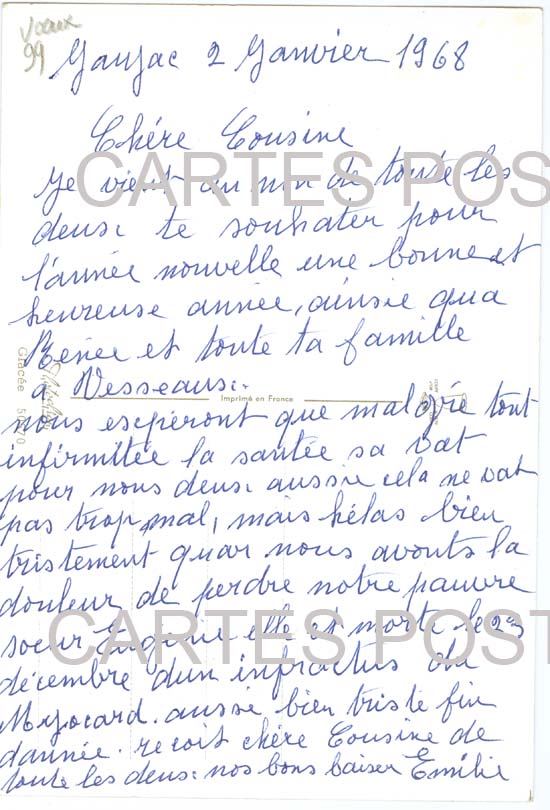 Joeux
99
Gaujac 2 Janvier 1968
Chére Cousine
CARTES POST
Je vient au non de toute les
deusc te souhater pour
l'année nouvelle une bonne et
heureuse année, ainsie qua
Renée et toute ta famille
a Vesseausc.
Imprimé en France
Glacée
nous esepéront que malgrée tout
infirmitée la santée sa vat
pour nous deusc aussie cela ne vat
pas trop mal, mais hélas bien
tristement quar nous avonts la
douleur de perdre notre pauvre
soeur Eugénie elle est morte le 23
CARTES POST
décembre d'un infractus du
Myocard. aussie bien triste fin
dannée. recoit chére Cousine de
toute les deusc nos bons baiser Emilie